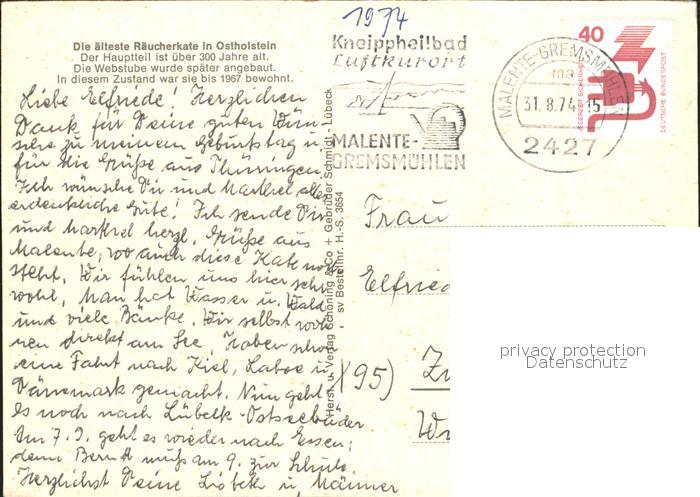 1974
Die älteste Räucherkate in Ostholstein
Der Hauptteil ist über 300 Jahre alt.
Die Webstube wurde später angebaut.
In diesem Zustand war sie bis 1967 bewohnt.
Liebe Elfriede! Herzlichen
Dank für Deine guten Wün-
sche zu meinem Geburtstag u.
für die Grüße aus Thüringen.
Ich wünsche Dir und Marthel alles
erdenkliche Gute! Ich sende Dir
und Marthel herzl. Grüße aus
Malente, wo auch diese Kate noch
steht. Wir fühlen uns hier sehr
wohl, Man hat Wasser u. Wald
und viele Bänke. Wir selbst woh-
nen direkt am See, Haben schon
eine Fahrt nach Kiel, Laboe u.
Dänemark gemacht. Nun geht
es noch nach Lübeck-Ostseebäder
Am 7.9. geht es wieder nach Essen;
denn Bernd muß am 9. zur Schule.
Herzlichst Deine Lisbeth u. Männer
Herst. u. Verlag Schöning & Co + Gebrüder Schmidt - Lübeck
sv Bestellnr. H.-S. 3654
Kneippheilbad
Luftkurort
MALENTE-
GREMSMÜHLEN
MALENTE-GREMSMÜHLEN
ma
31.8.74-15
2427
40
JEDERZEIT SICHERHEIT
DEUTSCHE BUNDESPOST
Frau
Elfriede
(95)
privacy protection
Datenschutz